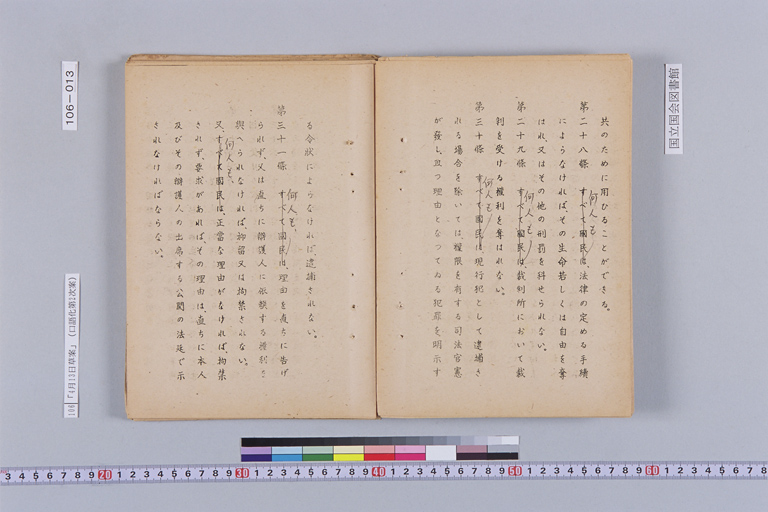 共のために用ひることができる。
第二十八條 すべて國民は、法律の定める手續
何人も、
によらなければ、その生命若しくは自由を奪
はれ、又はその他の刑罰を科せられない。
第二十九條 すべて國民は、裁判所において裁
何人も、
判を受ける權利を奪はれない。
第三十條 すべて國民は、現行犯として逮捕さ
何人も、
れる場合を除いては、權限を有する司法官憲
が發し、且つ理由となつてゐる犯罪を明示す
る令狀によらなければ、逮捕されない。
第三十一條 すべて國民は、理由を直ちに告げ
何人も、
られず、又は直ちに辯護人に依頼する權利を
與へられなければ、抑留又は拘禁されない。
又、すべて國民は、正當な理由がなければ、拘禁
何人も、
されず、要求があれば、その理由は、直ちに本人
及びその辯護人の出席する公開の法廷で示
されなければならない。
106-013
106「4月13日草案」(口語化第2次案)
国立国会図書館
3 4 5 6 7 8 9 20 1 2 3 4 5 6 7 8 9 30 1 2 3 4 5 6 7 8 9 40 1 2 3 4 5 6 7 8 9 50 1 2 3 4 5 6 7 8 9 60 1 2 3 4 5 6 7 8